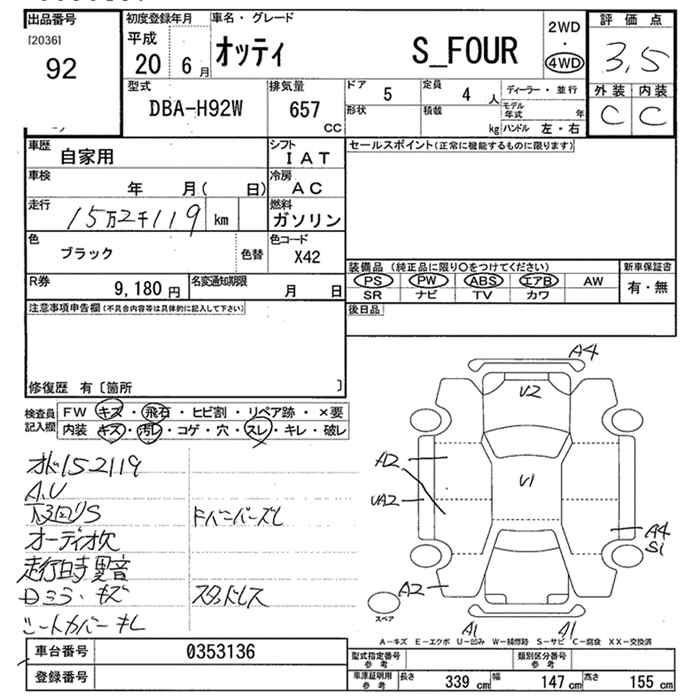 出品番号
[2036]
92
初度登録年月
平成
20 6 月
車名・グレード
オッティ S_FOUR
2WD
・
4WD
評価点
3,5
外装 内装
C C
型式
DBA-H92W
排気量
657
CC
ドア
5
定員
4 人
形状
積載
kg
ディーラー・並行
モデル年式 年
ハンドル 左・右
車歴
自家用
シフト
IAT
車検
年 月( 日)
冷房
AC
走行
15万2千119 km
燃料
ガソリン
色
ブラック
色替
色コード
X42
R券
9,180 円
名変通知期限
月 日
セールスポイント(正常に機能するものに限ります)
装備品 (純正品に限り○をつけてください)
PS PW ABS エアB AW
SR ナビ TV カワ
新車保証書
有・無
後日品
注意事項申告欄(不具合内容等は具体的に記入して下さい)
修復歴 有〔箇所 〕
検査員記入欄
FW キズ・飛石・ヒビ割・リペア跡・×要
内装 キズ・汚レ・コゲ・穴・スレ・キレ・破レ
オド152119
A,U
下回りS
ドバイバーズレ
オーディオ欠
走行時異音
スタッドレス
シートカバー キレ
A4
U2
A2
U1
UA2
A4
S1
A2
A1
A1
スペア
A-キズ E-エクボ U-凹み W-補修跡 S-サビ C-腐食 XX-交換済
車台番号
0353136
登録番号
型式指定番号
参考
類別区分番号
参考
車庫証明用
参考
長さ 339 cm 幅 147 cm 高さ 155 cm